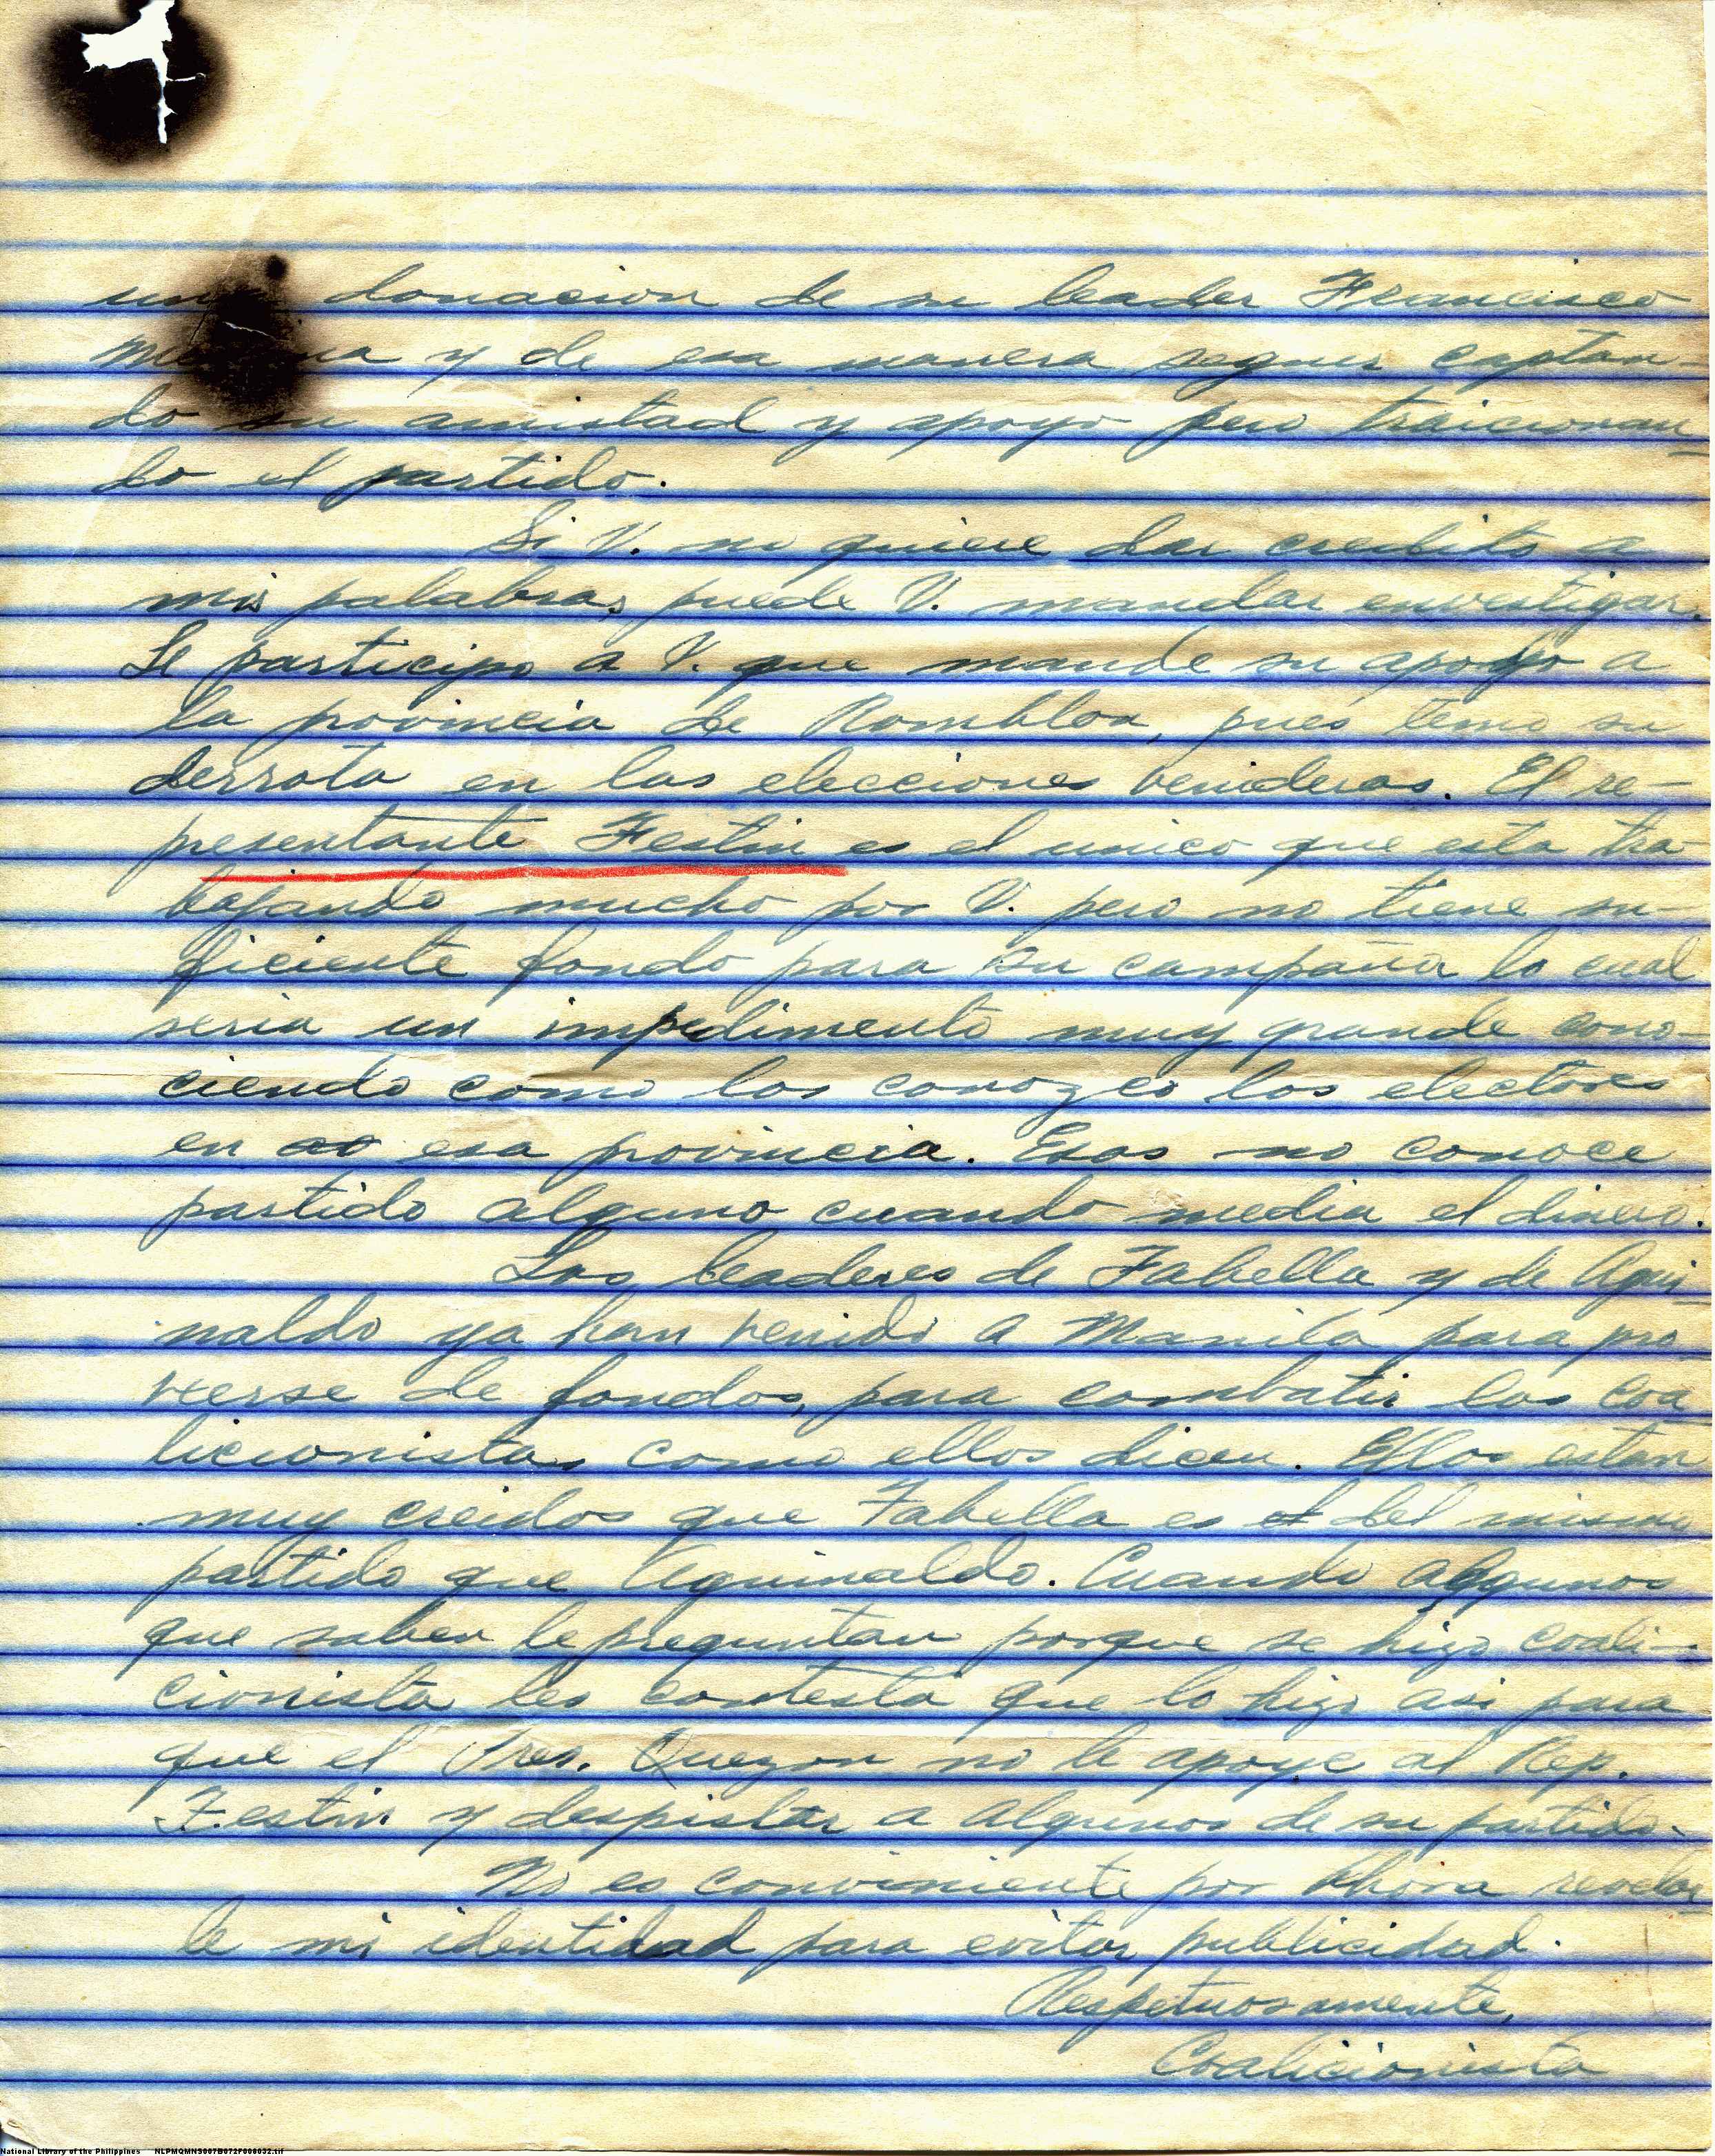 una donacion de su leader Francisco
y de esa manera seguir captan-
do su amistad y apoyo pero traicionan-
do el partido.
Si V. no quiere dar credito a
mis palabras, puede V. mandar envestigar.
Le participo a V. que mande su apoyo a
la provincia de Romblon, pues temo su
derrota en las elecciones venideras. El re-
presentante Festin es el unico que esta tra-
bajando mucho por V. pero no tiene su-
ficiente fondo para su campaña lo cual
seria un impedimento muy grande cono-
ciendo como los conozco los electores
en esa provincia. Esos no conoce
partido alguno cuando media el dinero.
Los leaderes de Fabella y de Agui-
naldo ya han venido a Manila para pro-
veerse de fondos, para combatir los coa-
licionistas como ellos dicen. Ellos estan
muy creidos que Fabella es del mismo
partido que Aguinaldo. Cuando algunos
que saben le preguntan porque se hizo coali-
cionista les contesta que lo hizo asi para
que el Pres. Quezon no le apoye al Rep.
Festin y despistar a algunos de su partido.
No es conviniente por ahora revelar-
le mi identidad para evitar publicidad.
Respetuosamente,
Coalicionista
National Library of the Philippines NLPMQMNS007B072F000032.tif